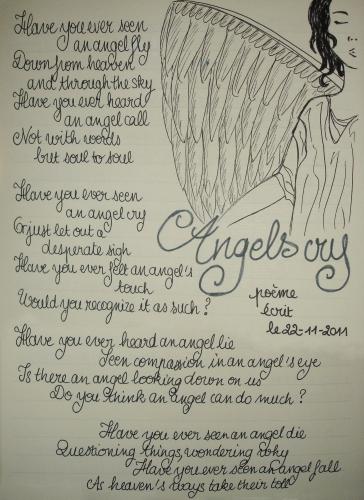 Have you ever seen
an angel fly
Down from heaven
and through the sky
Have you ever heard
an angel call
Not with words
but soul to soul
Have you ever seen
an angel cry
Or just let out a
desperate sigh
Have you ever felt an angel's
touch
Would you recognize it as such?
Angels cry
poème
écrit
le 22-11-2011
Have you ever heard an angel lie
Seen compassion in an angel's eye
Is there an angel looking down on us
Do you think an angel can do much?
Have you ever seen an angel die
Questioning things, wondering why
Have you ever seen an angel fall
As heaven's ways take their toll